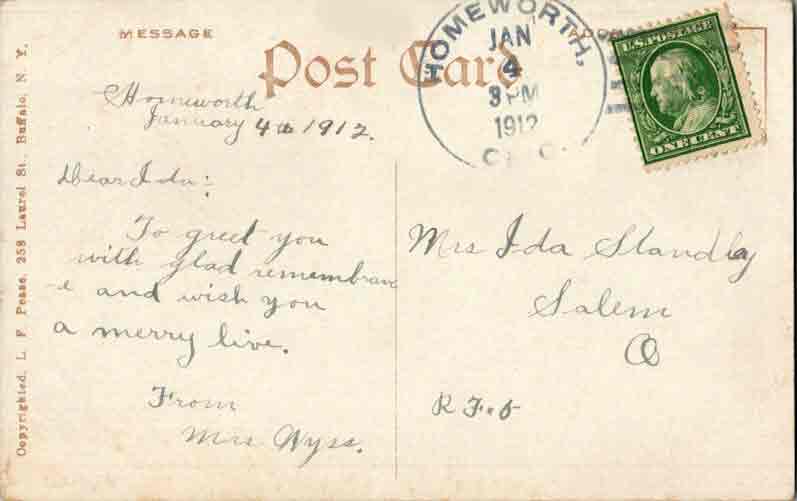 MESSAGE
Post Card
HOMEWORTH,
JAN
4
3 PM
1912
U.S. POSTAGE
ONE CENT
Homeworth
January 4th 1912.
Dear Ida:
To greet you
with glad remembranc
-e and wish you
a merry live.
From
Mrs Wyss.
Mrs Ida Standley
Salem
O
R F. 5
Copyrighted, L. F. Pease, 258 Laurel St., Buffalo, N. Y.